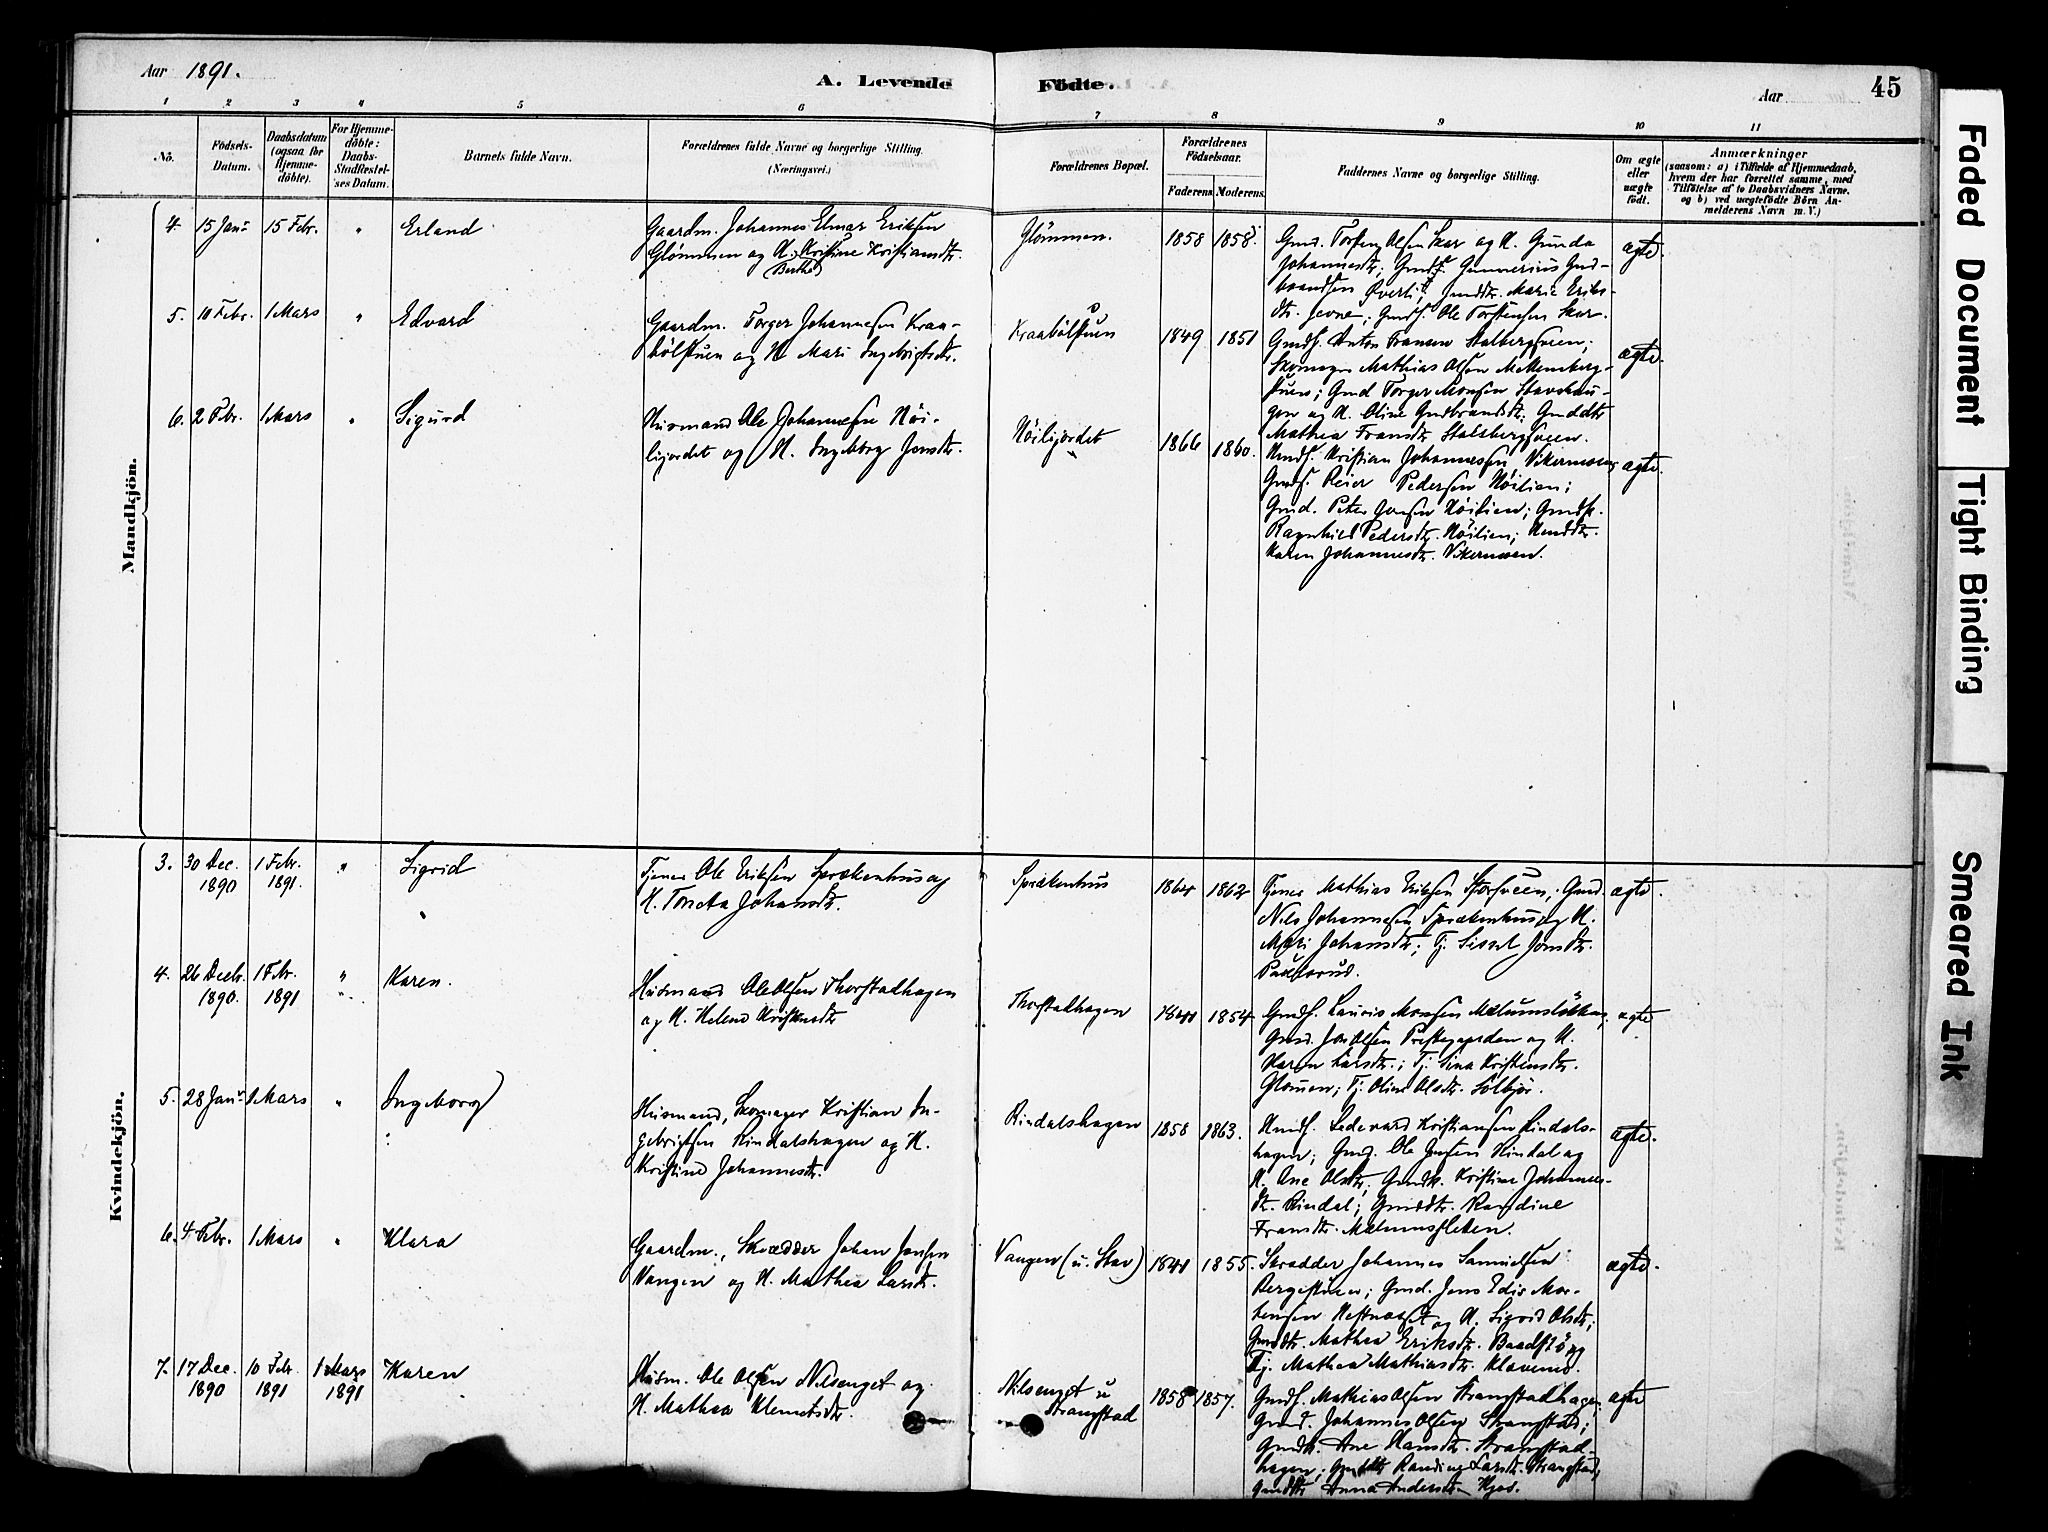 Aar 1891.
A. Levende Födte.
Aar
45
1 2 3 4 5 6 7 8 9 10 11
No.
Födsels-Datum.
Daabsdatum (ogsaa for Hjemme-döbte).
For Hjemme-döbte: Daabs-Stadfæstel-ses Datum.
Barnets fulde Navn.
Forældrenes fulde Navne og borgerlige Stilling.
(Næringsvei.)
Forældrenes Bopæl.
Forældrenes Födselsaar.
Faderens. Moderens.
Faddernes Navne og borgerlige Stilling.
Om ægte eller uægte födt.
Anmærkninger
(saasom: a) i Tilfælde af Hjemmedaab,
hvem der har forrettet samme, med
Tilföielse af to Daabsvidners Navne,
og b) ved uægtefödte Börn An-
melderens Navn m. V.)
Mandkjön.
4. 15 Jan. 15 Febr. " Erland
Gaardm. Johannes Elmar Eriksen
Glömmen og H. Kristine Kristiansdtr.
(Berthe)
Glömmen. 1858 1858.
Gmd. Torsten Olsen Skar og H. Gunda
Johannesdtr; Gmds. Gunnerius Gud-
brandsen Överli; Gmddtr. Marie Eriks-
dtr. Jevne; Gmds. Ole Torstensen Skar.
ægte.
5. 10 Febr. 1 Mars " Edvard
Gaardm. Torger Johannesen Kraa-
bölstuen og H. Mari Ingebrigtsdtr.
Kraabölstuen 1849 1851
Gmds. Anton Fransen Stalsbergsveen;
Skomager Mathias Olsen Mellemberg-
stuen; Gmd Torger Monsen Stavshau-
gen og H. Oline Gudbrandsdtr; Gmddtr
Mathea Fransdtr. Stalsbergsveen.
ægte.
6. 2 Febr. 1 Mars " Sigurd
Husmand Ole Johannesen Höi-
lijordet og H. Ingeborg Jonsdtr.
Höilijordet 1866 1860.
Hmds. Kristian Johannessen Vikermoen;
Gmds. Reier Pedersen Höilien;
Gmd. Peter Jensen Höilien; Gmdk.
Ragnhild Pedersdtr. Höilien; Hmddtr.
Karen Johannesdtr. Vikermoen.
ægte.
Kvindekjön.
3. 30 Dec. 1890 1 Febr. 1891. " Sigrid
Tjener Ole Eriksen Sprækenhus og
H. Toneta Johansdtr.
Sprækenhus 1864 1862
Tjener Mathias Eriksen Storsveen; Gmd.
Nils Johannesen Sprækenhus og H.
Mari Johansdtr; Tj. Sissel Jonsdtr.
ægte.
4. 26 Decbr. 1890. 1 Febr. 1891 " Karen.
Husmand Ole Olsen Thorstadhagen
og H. Helene Kristensdtr
Thorstadhagen 1841 1854
Gmds. Lauris Monsen Mælumslökken;
Gmd. Jon Olsen Prestegarden og H.
Karen Larsdtr.; Tj. Lina Kristensdtr.
Glomen; Tj. Oline Olsdtr. Solbjör.
ægte
5. 28 Jan. 1 Mars " Ingeborg
Husmand, Skomager Kristian In-
gebrigtsen Rindalshagen og H.
Kristine Johannesdtr.
Rindalshagen 1858 1863.
Hmds. Ledevard Kristiansen Rindals-
hagen; Gmd. Ole Jensen Rindal og
H. Ane Olsdtr; Gmdk. Kristine Johannes-
dtr. Rindal; Gmddtr. Randine
Fransdtr. Mælumsfleten.
ægte.
6. 4 Febr. 1 Mars " Klara
Gaardm., Skrædder Johan Jonsen
Vangen og H. Mathea Larsdtr.
Vangen (u. Stav) 1841 1855.
Skrædder Johannes Samuelsen
Bergestuen; Gmd. Jens Edis Mor-
tensen Hestnæset og H. Sigrid Olsdtr;
Gmddtr. Mathea Eriksdtr. Baadstö og
Tj. Mathea Mathiasdtr. Klavenes.
ægte.
7. 17 Dec. 1890 10 Febr. 1891 1 Mars 1891 Karen
Husm. Ole Olsen Nilsenget og
H. Mathea Klemetsdtr.
Nilsenget u Strangstad 1858 1857.
Gmds. Mathias Olsen Strangstadhagen
Gmd. Johannes Olsen Strangstad;
Gmdk. Ane Hansdtr. Strangstad-
hagen; Gmddtr Randine Larsdtr. Strangstad;
Gmddtr Anna Andersdtr Kjos.
ægte
Faded Document
Tight Binding
Smeared Ink